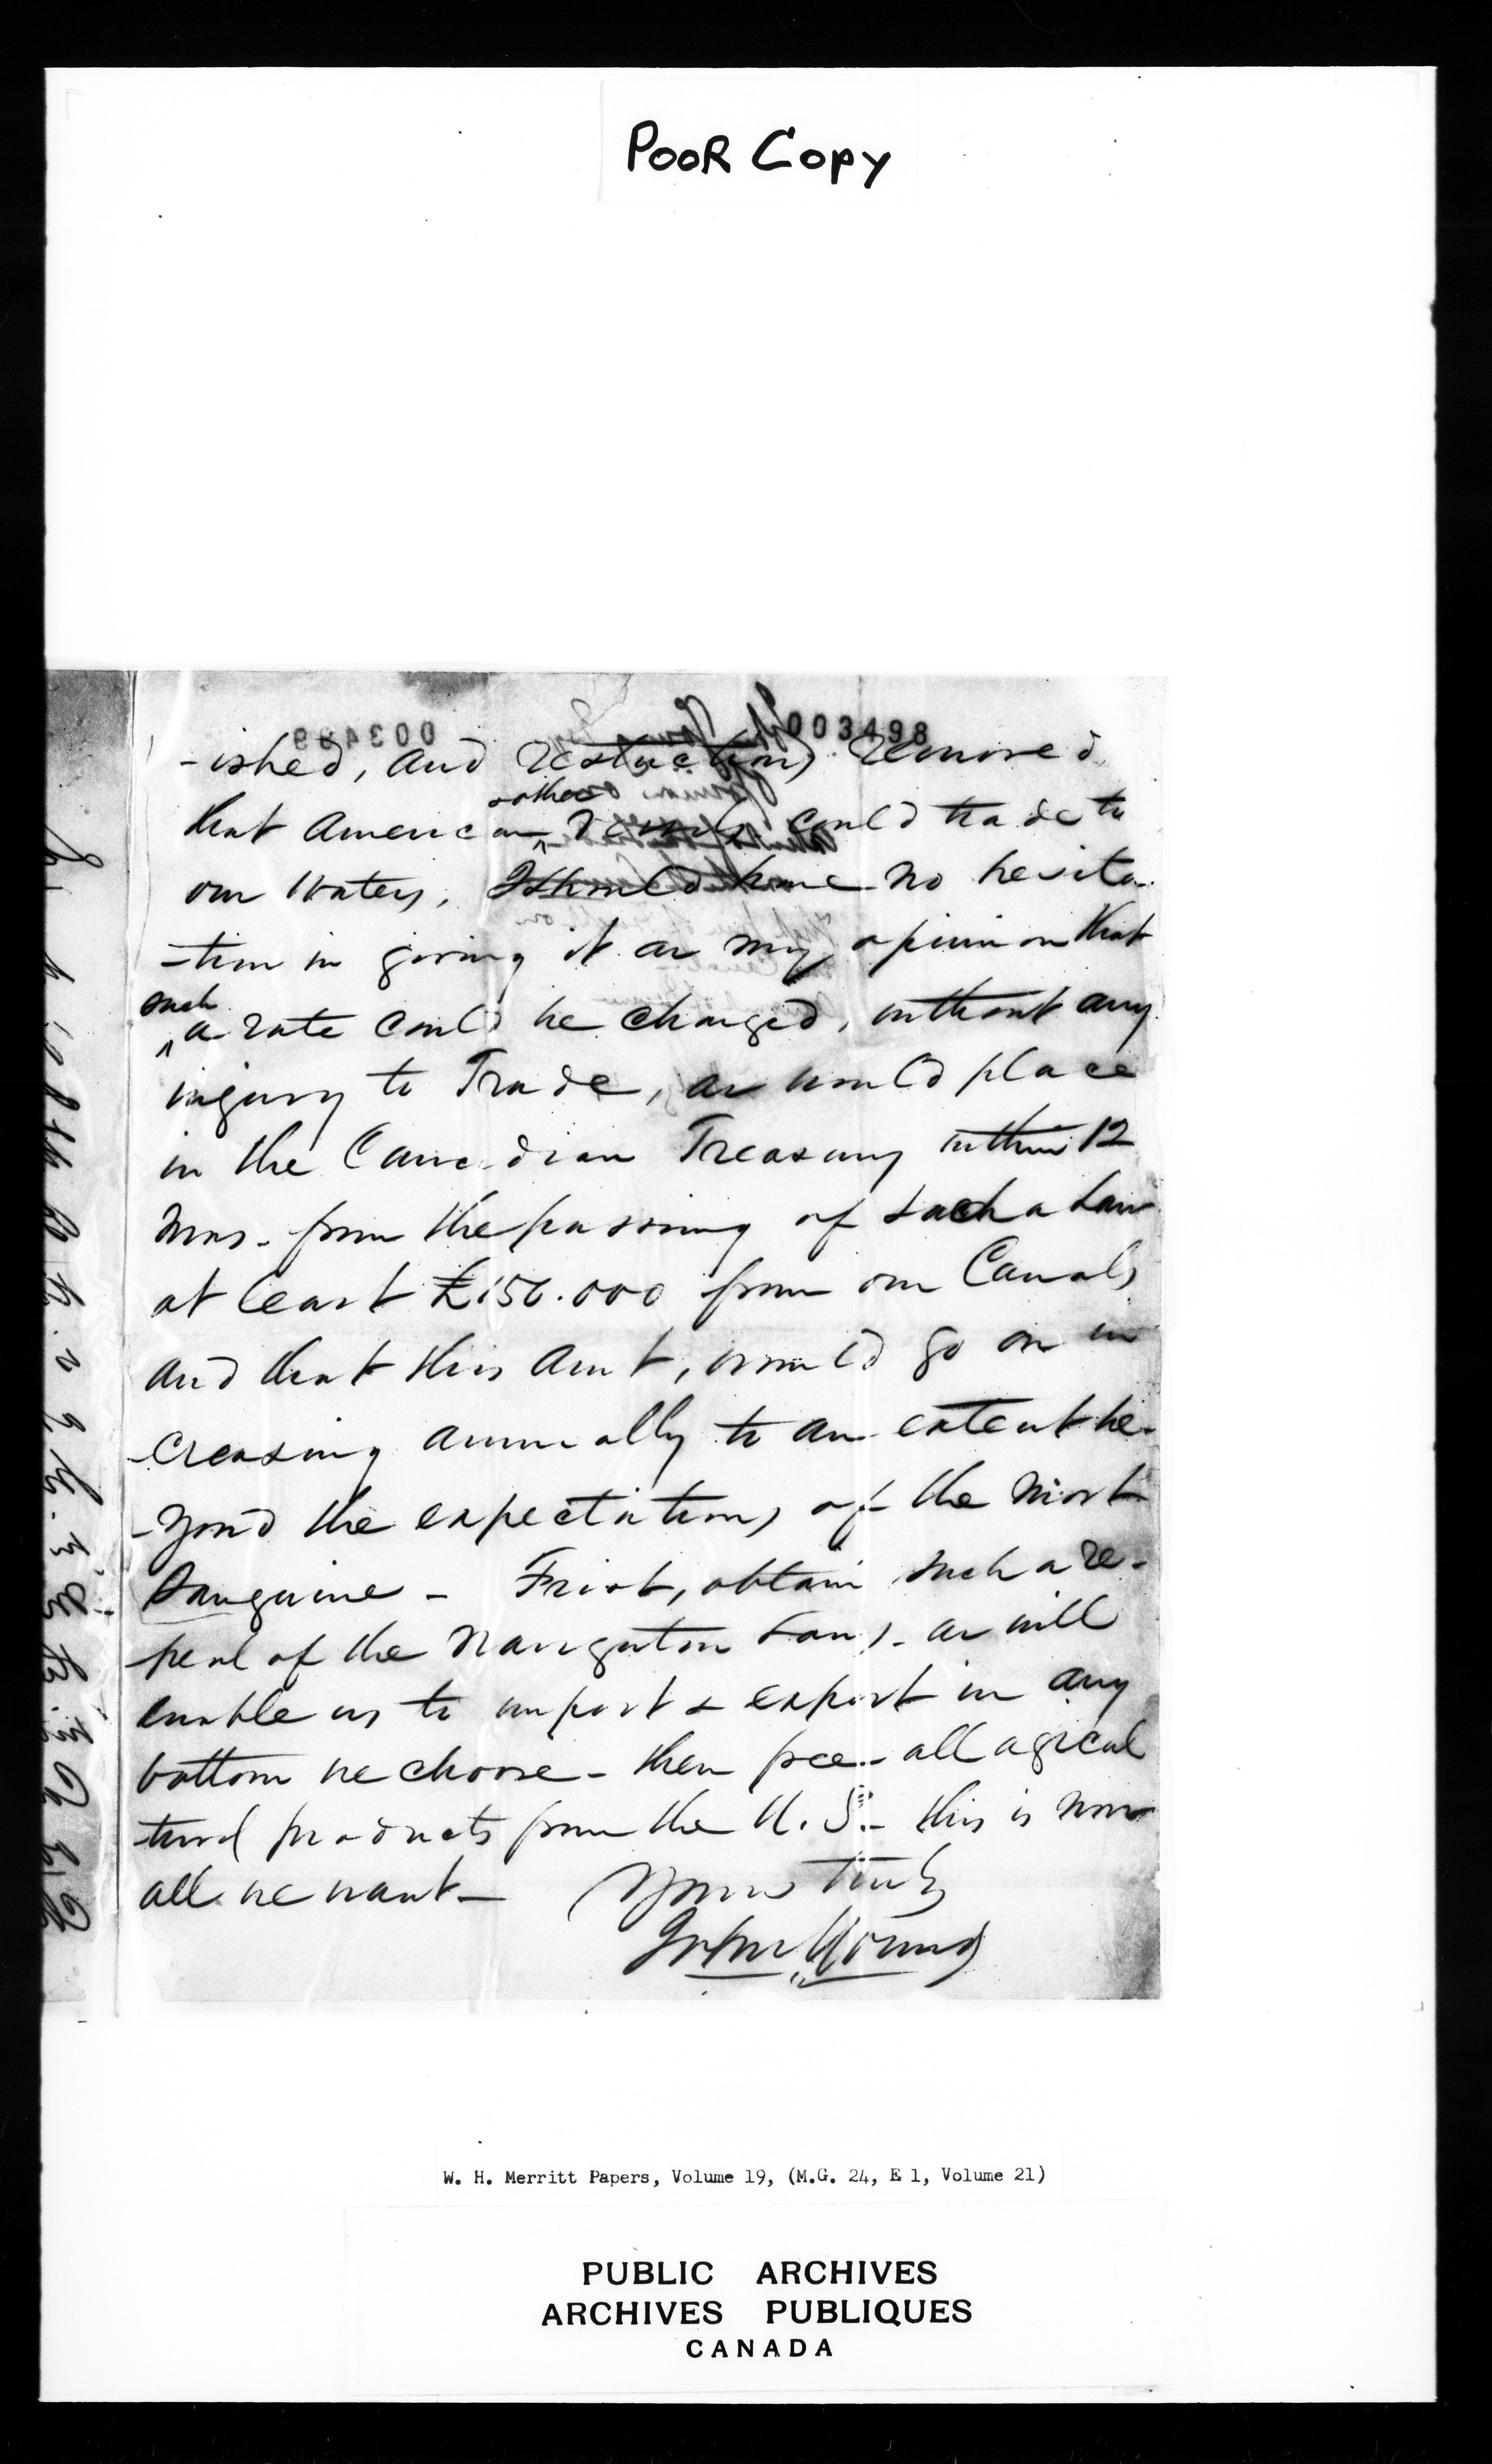 Poor Copy
003498
003499
-ished, and restrictions removed
that American ^ & other vessels could trade to
our Waters, I should have no hesita-
-tion in giving it as my opinion that
^ such a rate could be charged, without any
injury to Trade, as would place
in the Canadian Treasury within 12
mos. from the passing of such a Law
at least £150.000 from our Canals
and that this Amt, would go on in
-creasing annually to an extent be-
-yond the expectations of the most
Sanguine - First, obtain such a re-
-peal of the Navigation Laws - as will
enable us to import & export in any
bottom we choose - then free - all agricul
-tural products from the U. S. - this is now
all we want -
Yours truly
John Young
W. H. Merritt Papers, Volume 19, (M.G. 24, E 1, Volume 21)
PUBLIC ARCHIVES
ARCHIVES PUBLIQUES
CANADA